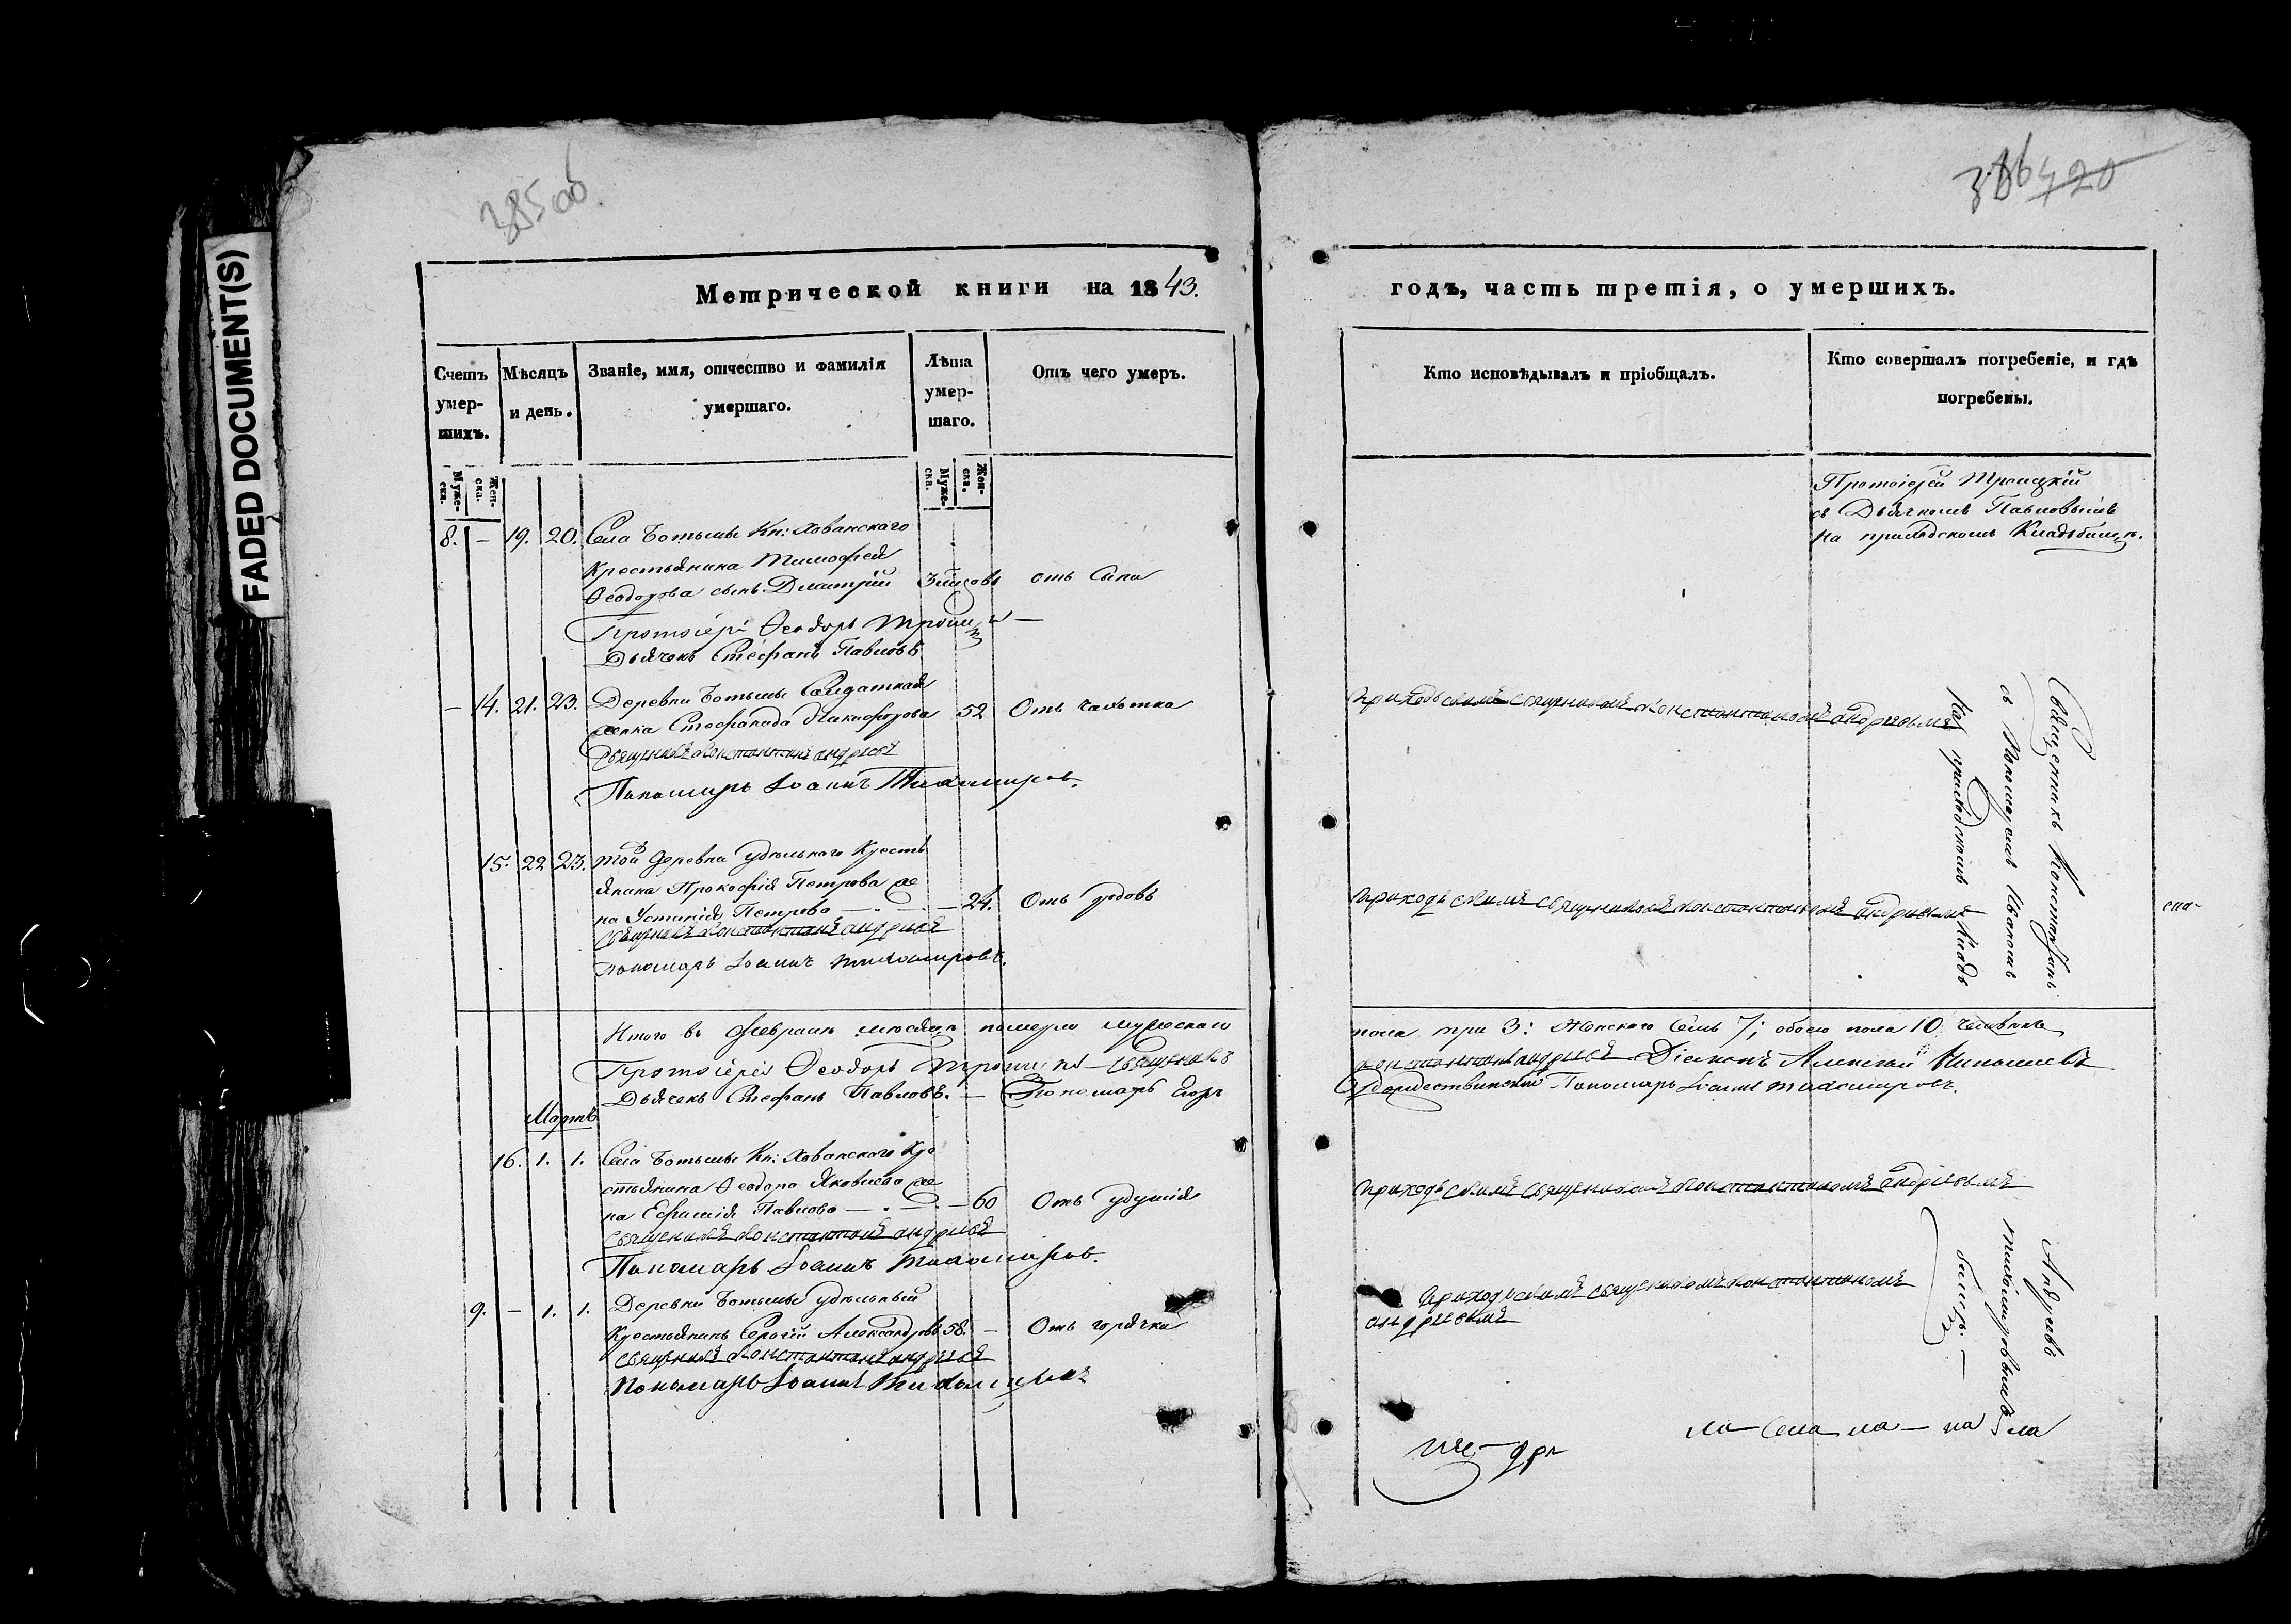 FADED DOCUMENT(S)
385 об
386 420
Метрической книги на 1843.
годъ, часть третія, о умершихъ.
Счетъ умер-
шихъ.
Мѣсяцъ
и день.
Званіе, имя, отчество и фамилія
умершаго.
Лѣта
умер-
шаго.
Отъ чего умеръ.
Кто исповѣдывалъ и пріобщалъ.
Кто совершалъ погребеніе, и гдѣ
погребены.
Муже-
ска.
Жен-
ска.
Муже-
ска.
Жен-
ска.
Протоіерей Троицкій
съ Дьячкомъ Павловымъ
на приходскомъ Кладбищѣ.
8. — 19. 20. Села Ботьмы Кн: Хованскаго
Крестьянина Тимофея
Ѳеодорова сынъ Димитрій
отъ Сыпи
Протоіерей Ѳеодоръ
Дьячекъ Стефанъ Павловъ
— 14. 21. 23. Деревни Ботьмы Солдатская
женка Стефанида Никифорова 52 Отъ чахотки
Приходскимъ священникомъ Константиномъ Андреевымъ
священникъ Константинъ Андреевъ
Пономарь Іоаннъ Тихомиров.
15. 22 23. Той деревни удѣльнаго Кресть
янина Прокофія Петрова же
на Устинія Петрова — 24. Отъ родовъ
Приходскимъ священникомъ Константиномъ Андреевымъ
священникъ Константинъ Андреевъ
пономарь Іоаннъ Тихомировъ.
Священникъ Константинъ
съ Пономаремъ Иваномъ
На приходскомъ Клад
Итого въ Февралѣ мѣсяцѣ померло мужескаго
пола три 3: Женскаго Семь 7; обоего пола 10 человѣкъ
Протоіерей Ѳеодоръ Троицкій — священникъ
Константинъ Андреевъ Діаконъ Алексѣй
Дьячекъ Стефанъ Павловъ. — Пономарь Егоръ
Рождественскій Пономарь Іоаннъ Тихомировъ.
Мартъ
16. 1. 1. Села Ботьмы Кн: Хованскаго Кре
стьянина Ѳеодора Яковлева же
на Ефимія Павлова — 60 Отъ удушія
Приходскимъ священникомъ Константиномъ Андреевымъ
священникъ Константинъ Андреевъ
Пономарь Іоаннъ Тихомиров.
9. — 1. 1. Деревни Ботьмы удѣльный
Крестьянинъ Сергій Александровъ 58. — Отъ горячки
Приходскимъ священникомъ Константиномъ
Андреевымъ
священникъ Константинъ Андреевъ
Пономарь Іоаннъ Тихомировъ
Андреевъ
Тихомировымъ
бищѣ. —